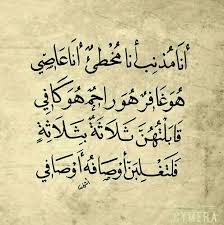 أَنَا مُذْنِبٌ أَنَا مُخْطِئٌ أَنَا عَاصِي
هُوَ غَافِرٌ هُوَ رَاحِمٌ هُوَ كَافِي
قَابَلْتُهُنَّ ثَلَاثَةً بِثَلَاثَةٍ
فَلَتَغْلِبَنَّ أَوْصَافُهُ أَوْصَافِي
CYMERA